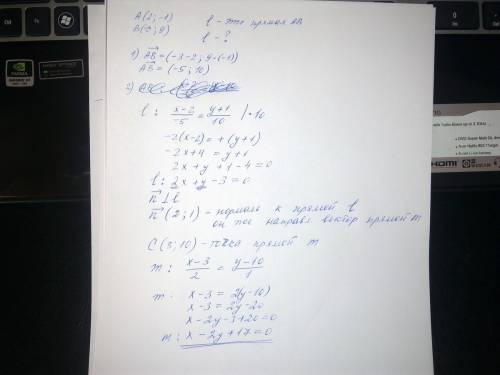 A(2;-1)
B(-3;9)
l - это прямая AB
l - ?
1) AB = (-3-2; 9-(-1))
AB = (-5; 10)
2)
l: x-2/-5 = y+1/10 | · 10
-2(x-2) = +(y+1)
-2x+4 = y+1
2x+y+1-4=0
l: 2x+y-3=0
n ⊥ l
n (2;1) - нормаль к прямой l
он же направл вектор прямой m
C(3;10) - точка прямой m
m: x-3/2 = y-10/1
m: x-3 = 2(y-10)
x-3 = 2y-20
x-2y-3+20=0
m: x-2y+17=0
NVIDIA
HDMI